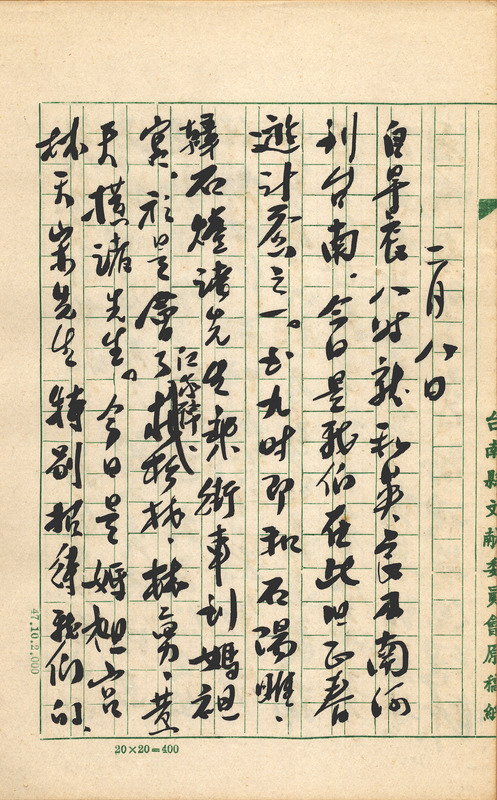 台南縣文獻委員會原稿紙
二月八日
自早晨八时就和英、良 南河
到台南。今日是我们在此旧正春
遊計 之一。於九时即和石陽睢、
韓石爐諸先生乘街車到媽祖
宮、於是會了江家錦、 松林、林勇、黃
天橫諸先生。今日是媽祖宮
林天 先生特別招待我们的、
20×20＝400
47.10.2.000